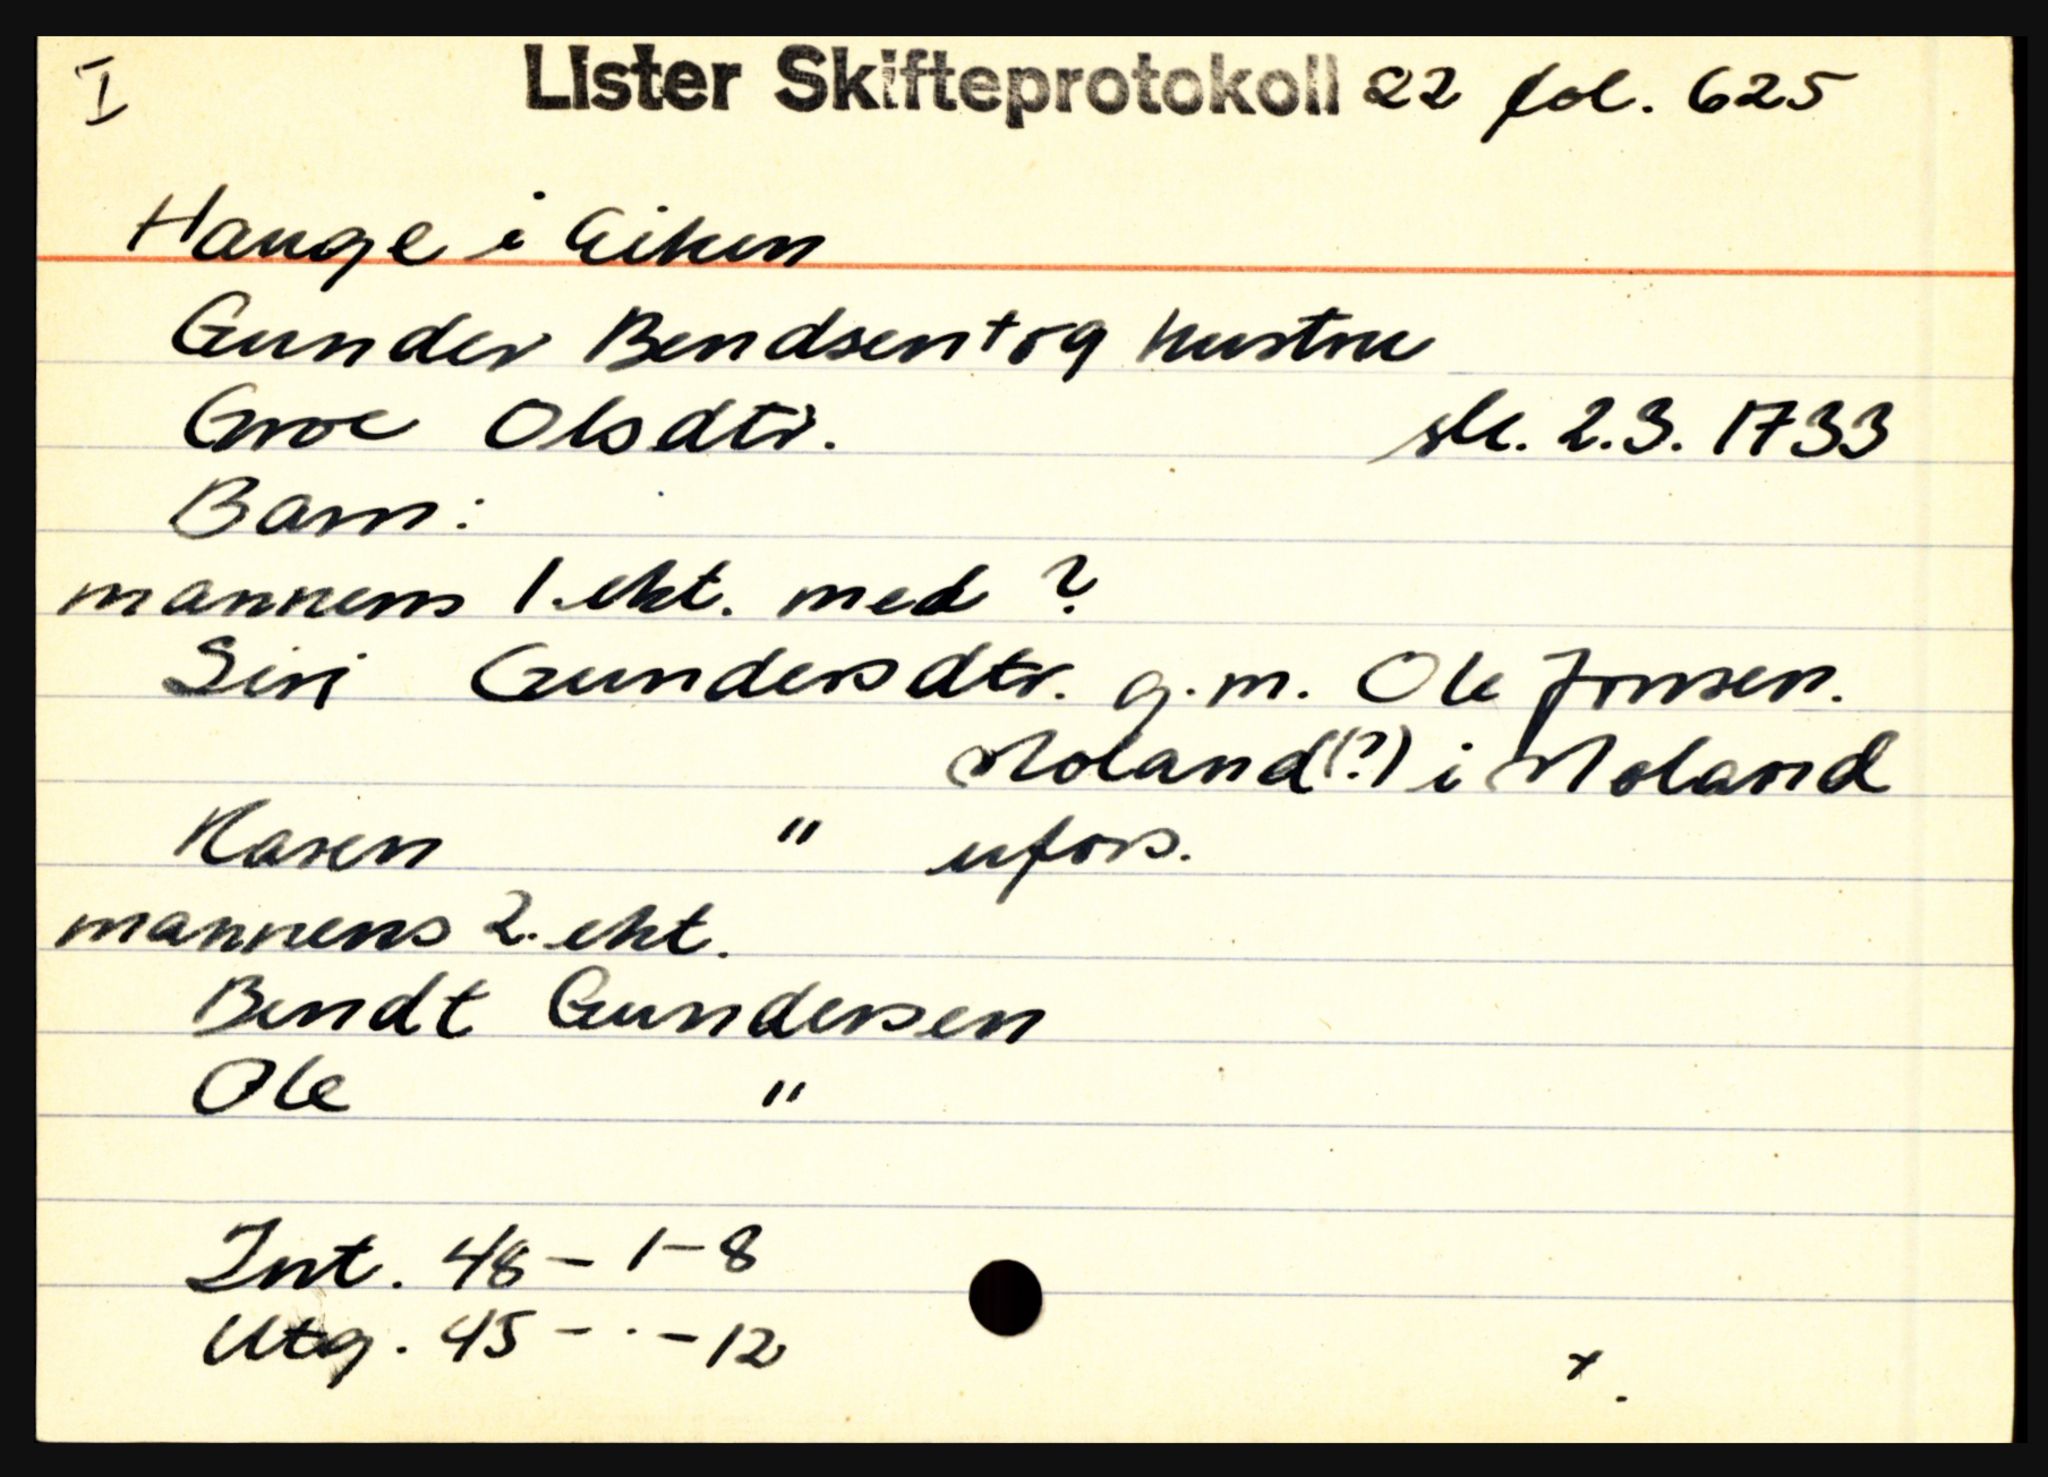 I Lister Skifteprotokoll 22 fol. 625
Hauge i Eiken
Gunder Bendsen + og hustru
Groe Olsdtr. sk. 2.3. 1733
Barn:
mannens 1. ekt. med ?
Siri Gundersdtr. g.m. Ole Jonsen.
Moland (?) i Moland
Karen " ufors.
mannens 2. ekt.
Bendt Gundersen
Ole "
Int. 48 - 1 - 8
Utg. 45 - · - 12
+ .